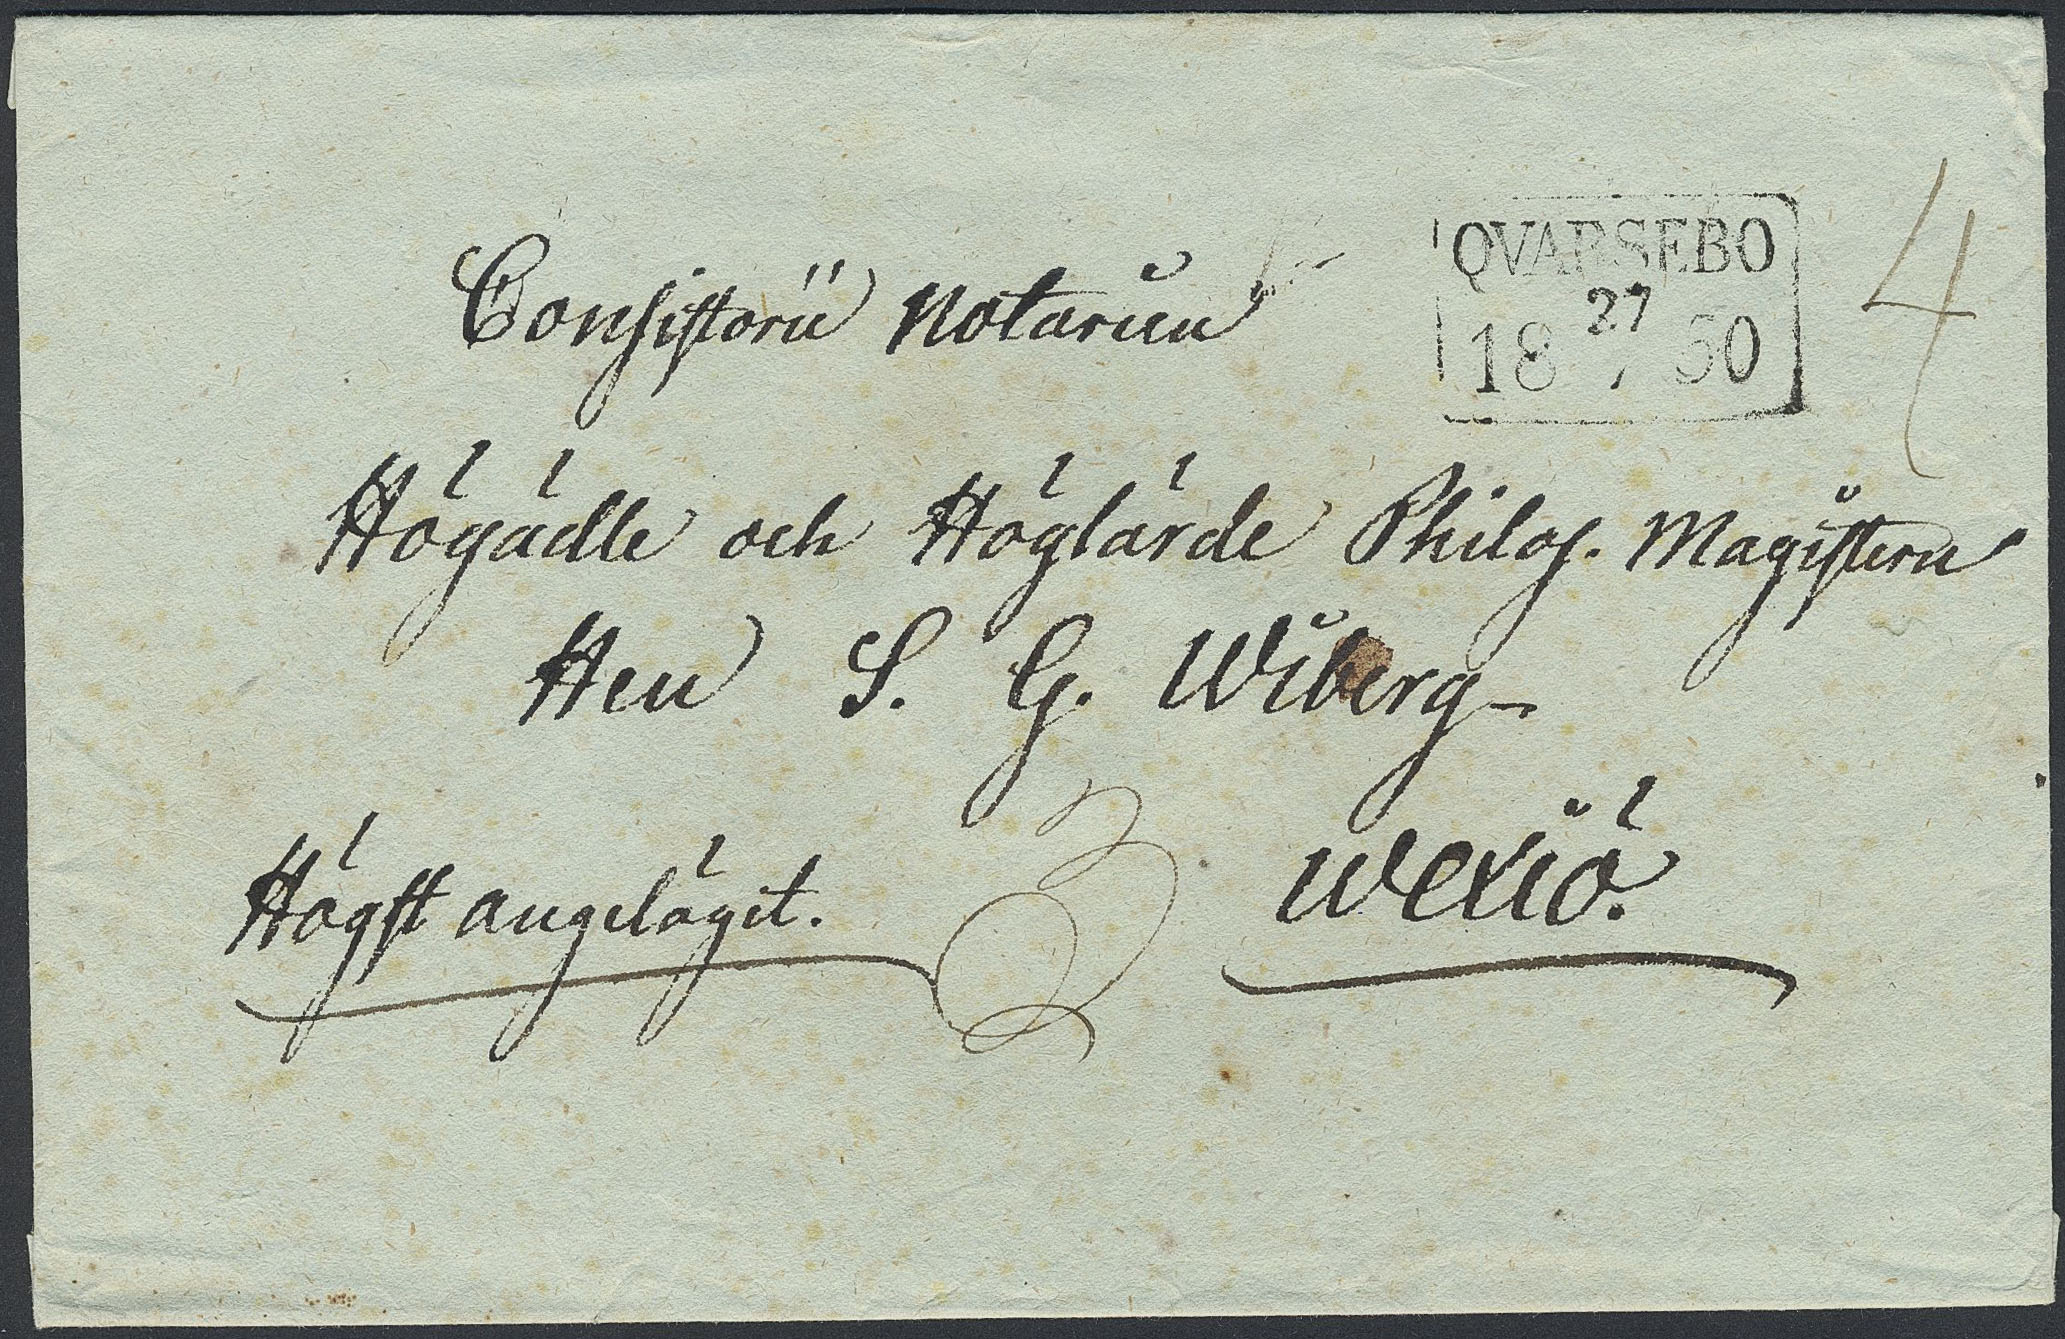 QVARSEBO
27
18 7 50
4
Consistorii Notarien
Högädle och Höglärde Philos. Magistern
Herr S. G. Wiberg
Wexiö.
Högst angelägit.